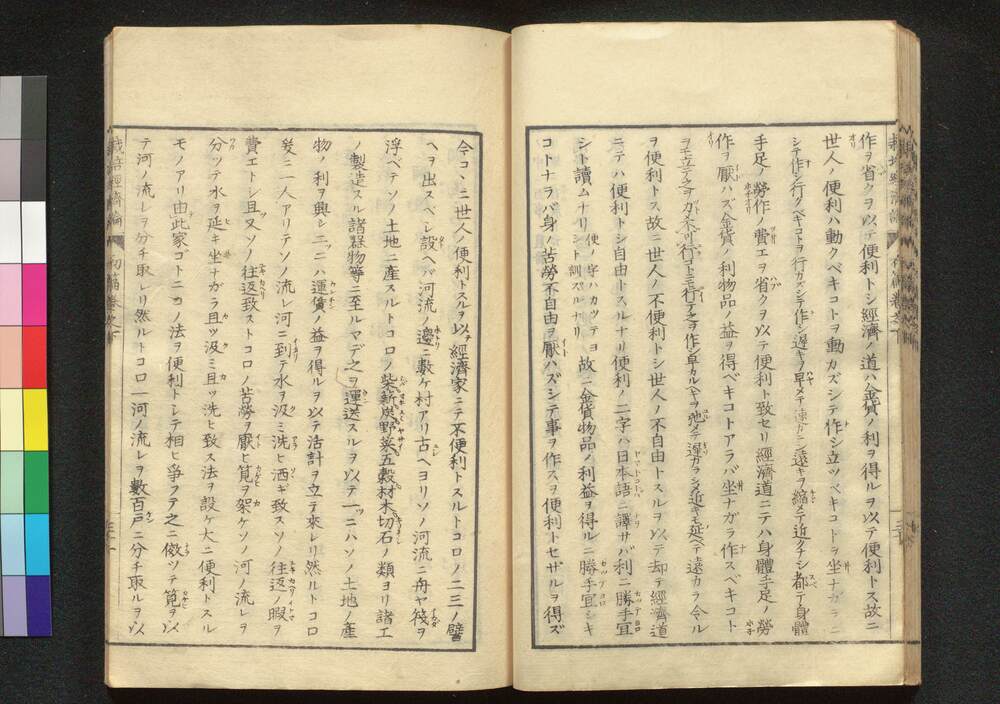 作ヲ省クヲ以テ便利トシ經濟ノ道ハ金貨ノ利ヲ得ルヲ以テ便利トス故ニ
世人ノ便利ハ動クベキコトヲ動カズシテ作シ立ツベキコトヲ坐ナガラニ
シテ作シ行クベキコトヲ行カズシテ作シ遲キヲ早メテ速カニシ遠キヲ縮メテ近クナシ都テ身體
手足ノ勞作ノ費エヲ省クヲ以テ便利ト致セリ經濟道ニテハ身體手足ノ勞
作ヲ厭ハズ金貨ノ利物品ノ益ヲ得ベキコトアラバ坐ナガラ作スベキコト
ヲモ立テ之ヲ作シ
ヲ便利トス故ニ世人ノ不便利トシ世人ノ不自由トスルヲ以テ却テ經濟道
ニテハ便利トシ自由トスルナリ便利ノ二字ハ日本語ニ譯サバ利ニ勝手宜
シト讀ムナリ便ノ字ハカツテヨシト訓ズルナリ故ニ金貨物品ノ利益ヲ得ルニ勝手宜シキ
コトナラバ身ノ苦勞不自由ヲ厭ハズシテ事ヲ作スヲ便利トセザルヲ得ズ
今コヽニ世人ノ便利トスルヲ以テ經濟家ニテ不便利トスルトコロノ二三ノ譬
ヘヲ出スベシ設ヘバ河流ノ邊ニ數ケ村アリ古ヘヨリソノ河流ニ舟ヤ筏ヲ
浮ベテソノ土地ニ產スルトコロノ柴薪炭野菜五穀材木切石ノ類ヨリ諸工
ノ製造スル諸器物等ニ至ルマデ之ヲ運送スルヲ以テ一ツニハソノ土地ノ產
物ノ利ヲ興シ二ツニハ運賃ノ益ヲ得ルヲ以テ活計ヲ立テ來レリ然ルトコロ
後ニ一人アリテソノ流レ河ニ到テ水ヲ汲ミ洗ヒ洒ギ致スソノ往返ノ暇ヲ
費エトシ且又ソノ往返致ストコロノ苦勞ヲ厭ヒ筧ヲ架ケソノ河ノ流レヲ
分ツテ水ヲ延キ坐ナガラ且ツ汲ミ且ツ洗ヒ致ス法ヲ設ケ大ニ便利トスル
モノアリ由此家ゴトニコノ法ヲ便利トシテ相ヒ爭フテ之ニ傚ツテ筧ヲ以
テ河ノ流レヲ分チ取レリ然ルトコロ一河ノ流レヲ數百戸ニ分チ取ルヲ以
栽培經濟論
初篇卷之下